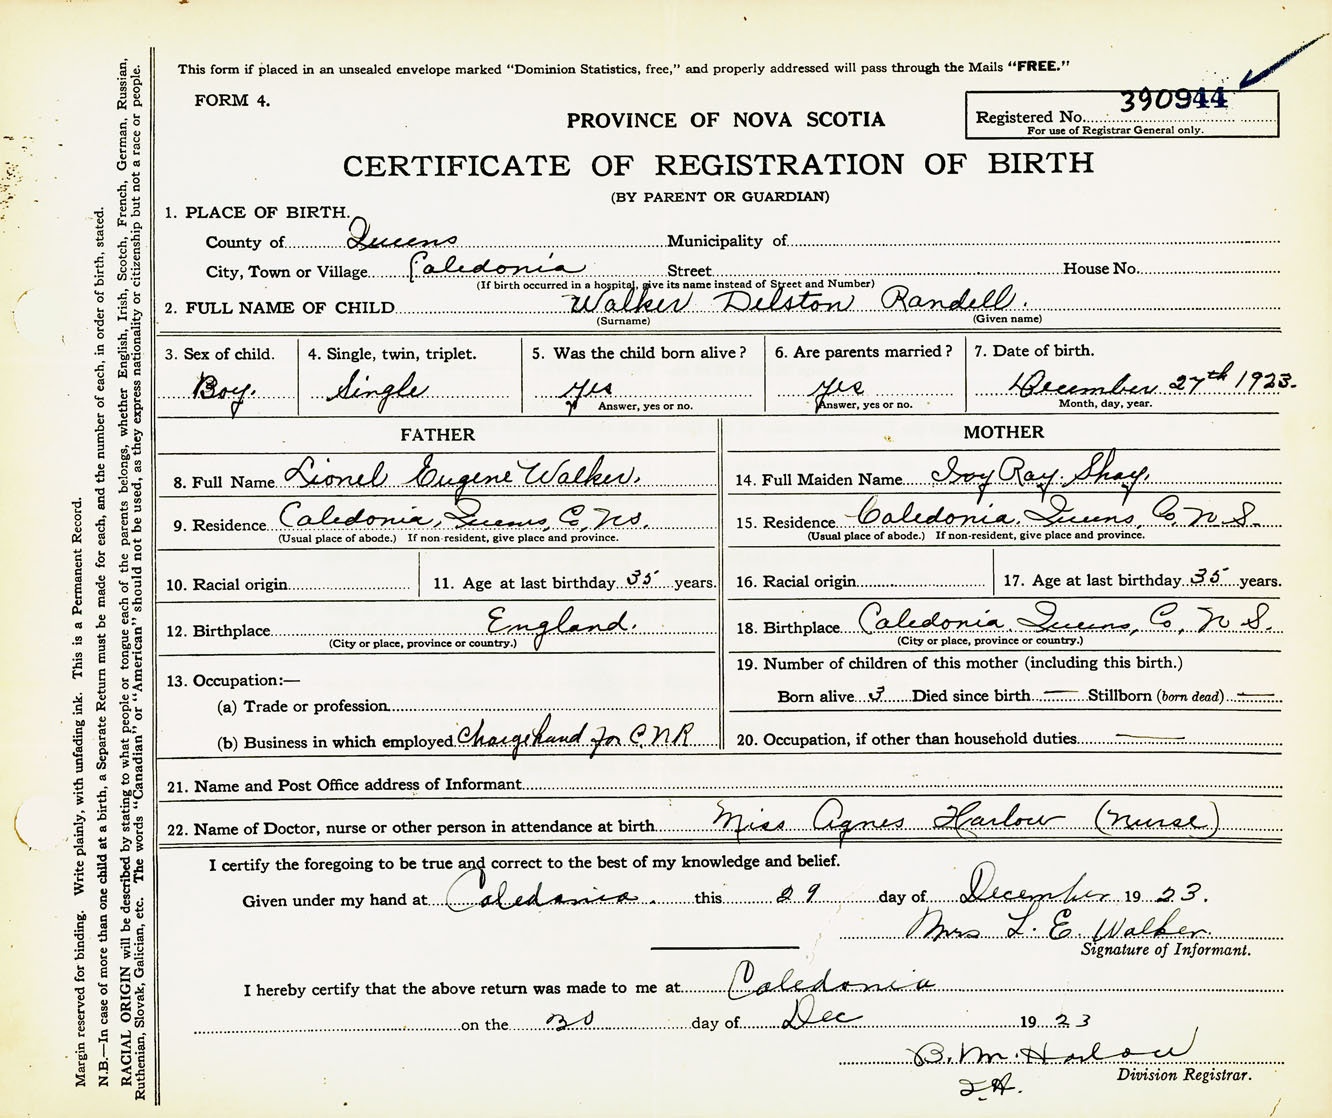 This form if placed in an unsealed envelope marked "Dominion Statistics, free," and properly addressed will pass through the Mails "FREE."
FORM 4.
390944
Registered No.
For use of Registrar General only.
PROVINCE OF NOVA SCOTIA
CERTIFICATE OF REGISTRATION OF BIRTH
(BY PARENT OR GUARDIAN)
1. PLACE OF BIRTH.
County of Queens Municipality of
City, Town or Village Caledonia Street House No.
(If birth occurred in a hospital, give its name instead of Street and Number)
2. FULL NAME OF CHILD Walker Delston Randell.
(Surname) (Given name)
3. Sex of child. 4. Single, twin, triplet. 5. Was the child born alive? 6. Are parents married? 7. Date of birth.
Boy. Single yes yes December 27th 1923.
Answer, yes or no. Answer, yes or no. Month, day, year.
FATHER MOTHER
8. Full Name Lionel Eugene Walker. 14. Full Maiden Name Ivy Ray Shay.
9. Residence Caledonia, Queens, Co, NS. 15. Residence Caledonia. Queens, Co N S.
(Usual place of abode.) If non-resident, give place and province. (Usual place of abode.) If non-resident, give place and province.
10. Racial origin 11. Age at last birthday 35 years. 16. Racial origin 17. Age at last birthday 35 years.
12. Birthplace England. 18. Birthplace Caledonia, Queens, Co, N S.
(City or place, province or country.) (City or place, province or country.)
19. Number of children of this mother (including this birth.)
13. Occupation:—
Born alive 3 Died since birth — Stillborn (born dead) —
(a) Trade or profession
(b) Business in which employed Chargehand for C.N.R 20. Occupation, if other than household duties —
21. Name and Post Office address of Informant
22. Name of Doctor, nurse or other person in attendance at birth Miss Agnes Harlow (Nurse)
I certify the foregoing to be true and correct to the best of my knowledge and belief.
Given under my hand at Caledonia. this 29 day of December 1923.
Mrs L. E. Walker.
Signature of Informant.
I hereby certify that the above return was made to me at Caledonia
on the 30 day of Dec 1923
B. M. Harlow
Division Registrar.
Margin reserved for binding. Write plainly, with unfading ink. This is a Permanent Record.
N.B.—In case of more than one child at a birth, a Separate Return must be made for each, and the number of each, in order of birth, stated.
RACIAL ORIGIN will be described by stating to what people or tongue each of the parents belongs, whether English, Irish, Scotch, French, German, Russian,
Ruthenian, Slovak, Galician, etc. The words "Canadian" or "American" should not be used, as they express nationality or citizenship but not a race or people.